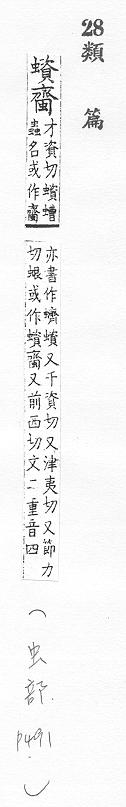 28類篇
蠐齏
才資切蠐螬
蟲名或作齏
亦書作蠐又千資切又津夷切又節力
切蝍或作蠐齏又前西切文二重音四
(虫部 p491)